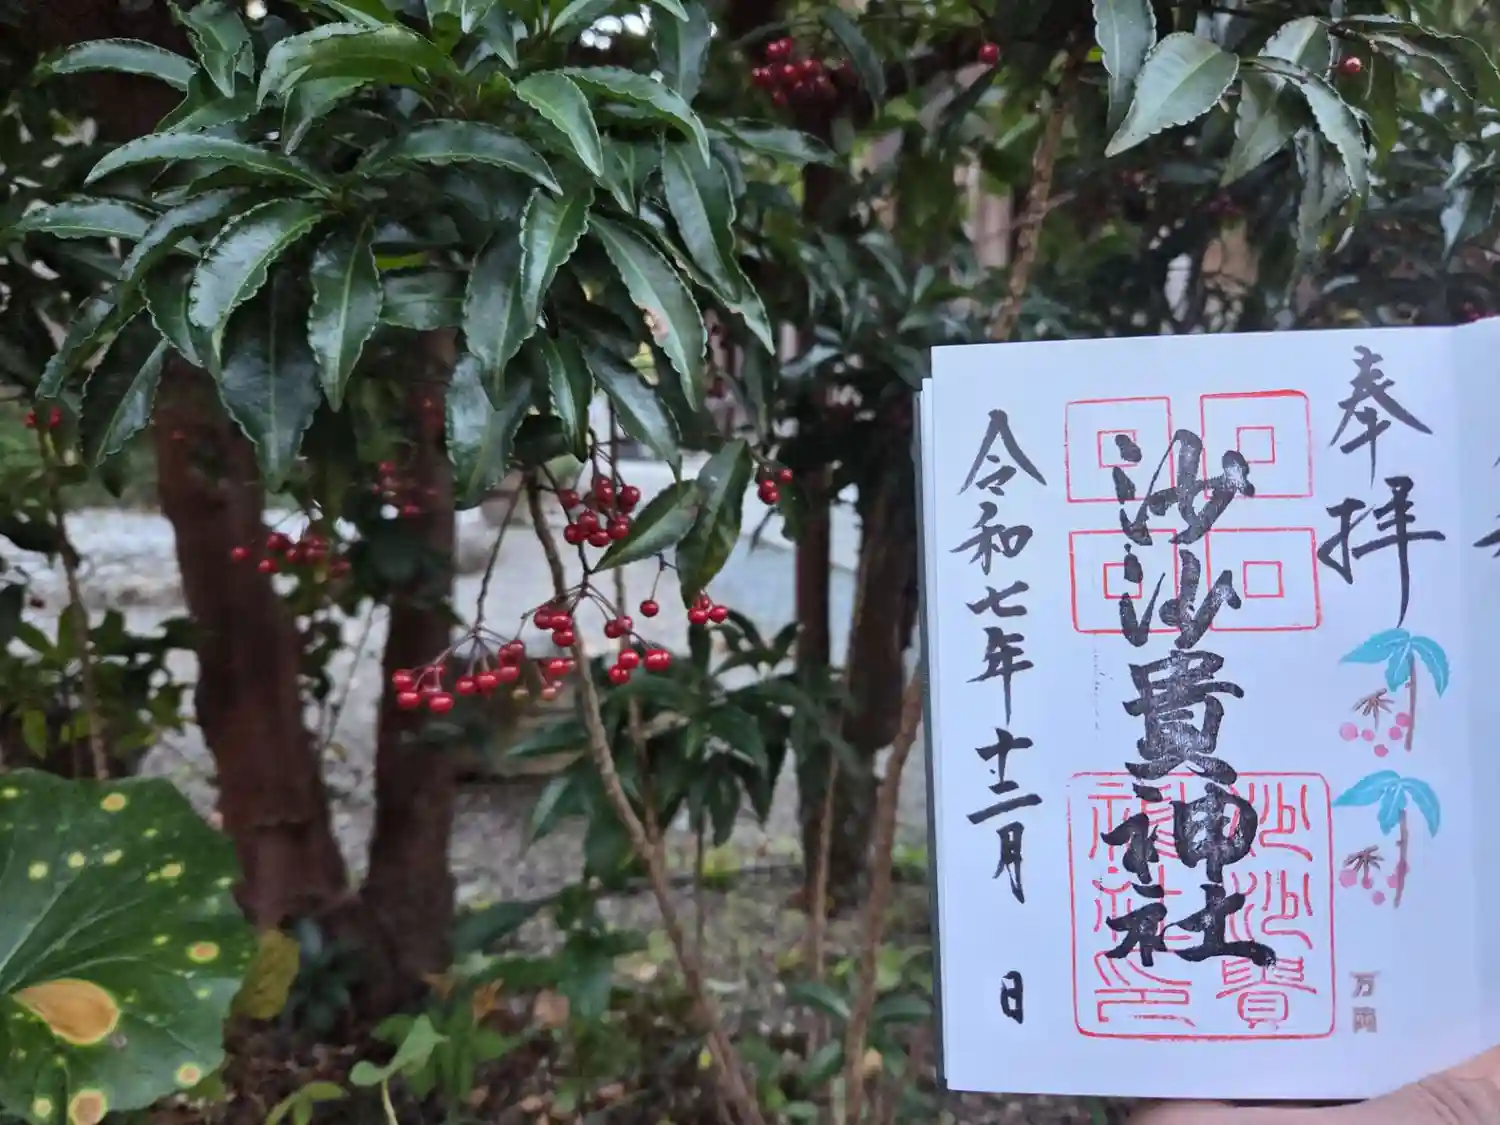 奉拝
万両
沙沙貴神社
沙沙貴
神社印
令和七年十二月 日